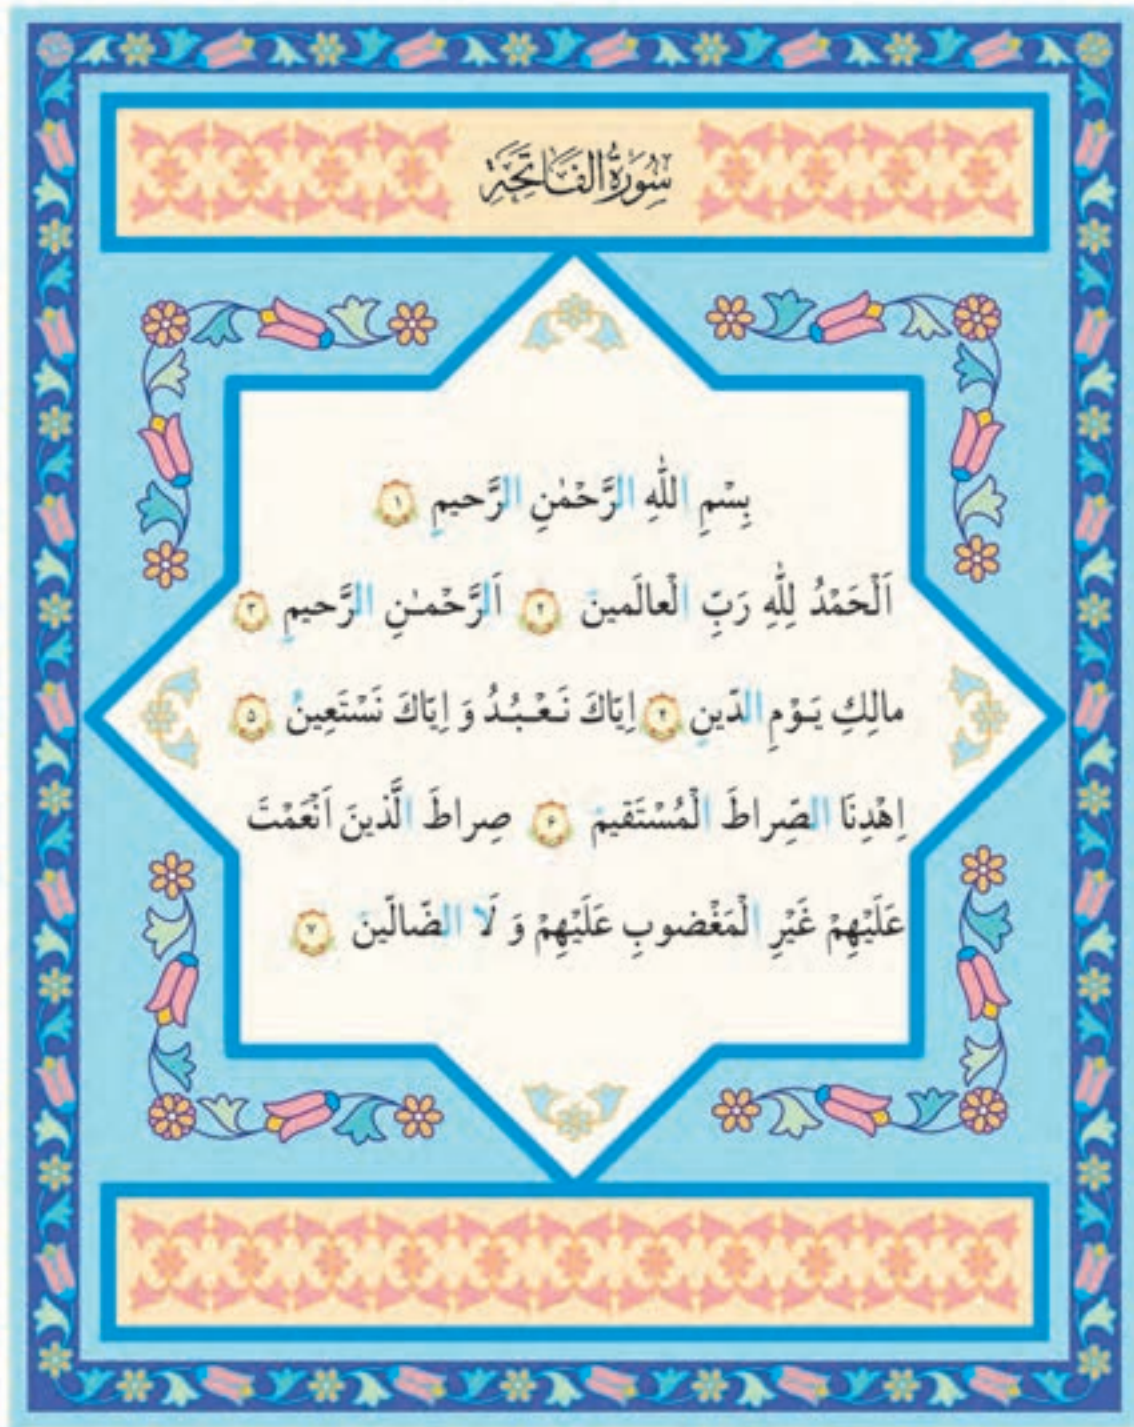 سُورَةُ الْفَاتِحَةِ
بِسْمِ اللّٰهِ الرَّحْمٰنِ الرَّحیمِ ۱
اَلْحَمْدُ لِلّٰهِ رَبِّ الْعالَمینَ ۲ اَلرَّحْمـٰنِ الرَّحیمِ ۳
مالِكِ یَوْمِ الدّینِ ۴ اِیّاكَ نَعْبُدُ وَ اِیّاكَ نَسْتَعینُ ۵
اِهْدِنَا الصِّراطَ الْمُسْتَقیمَ ۶ صِراطَ الَّذینَ اَنْعَمْتَ
عَلَیْهِمْ غَیْرِ الْمَغْضوبِ عَلَیْهِمْ وَ لَا الضّالّینَ ۷